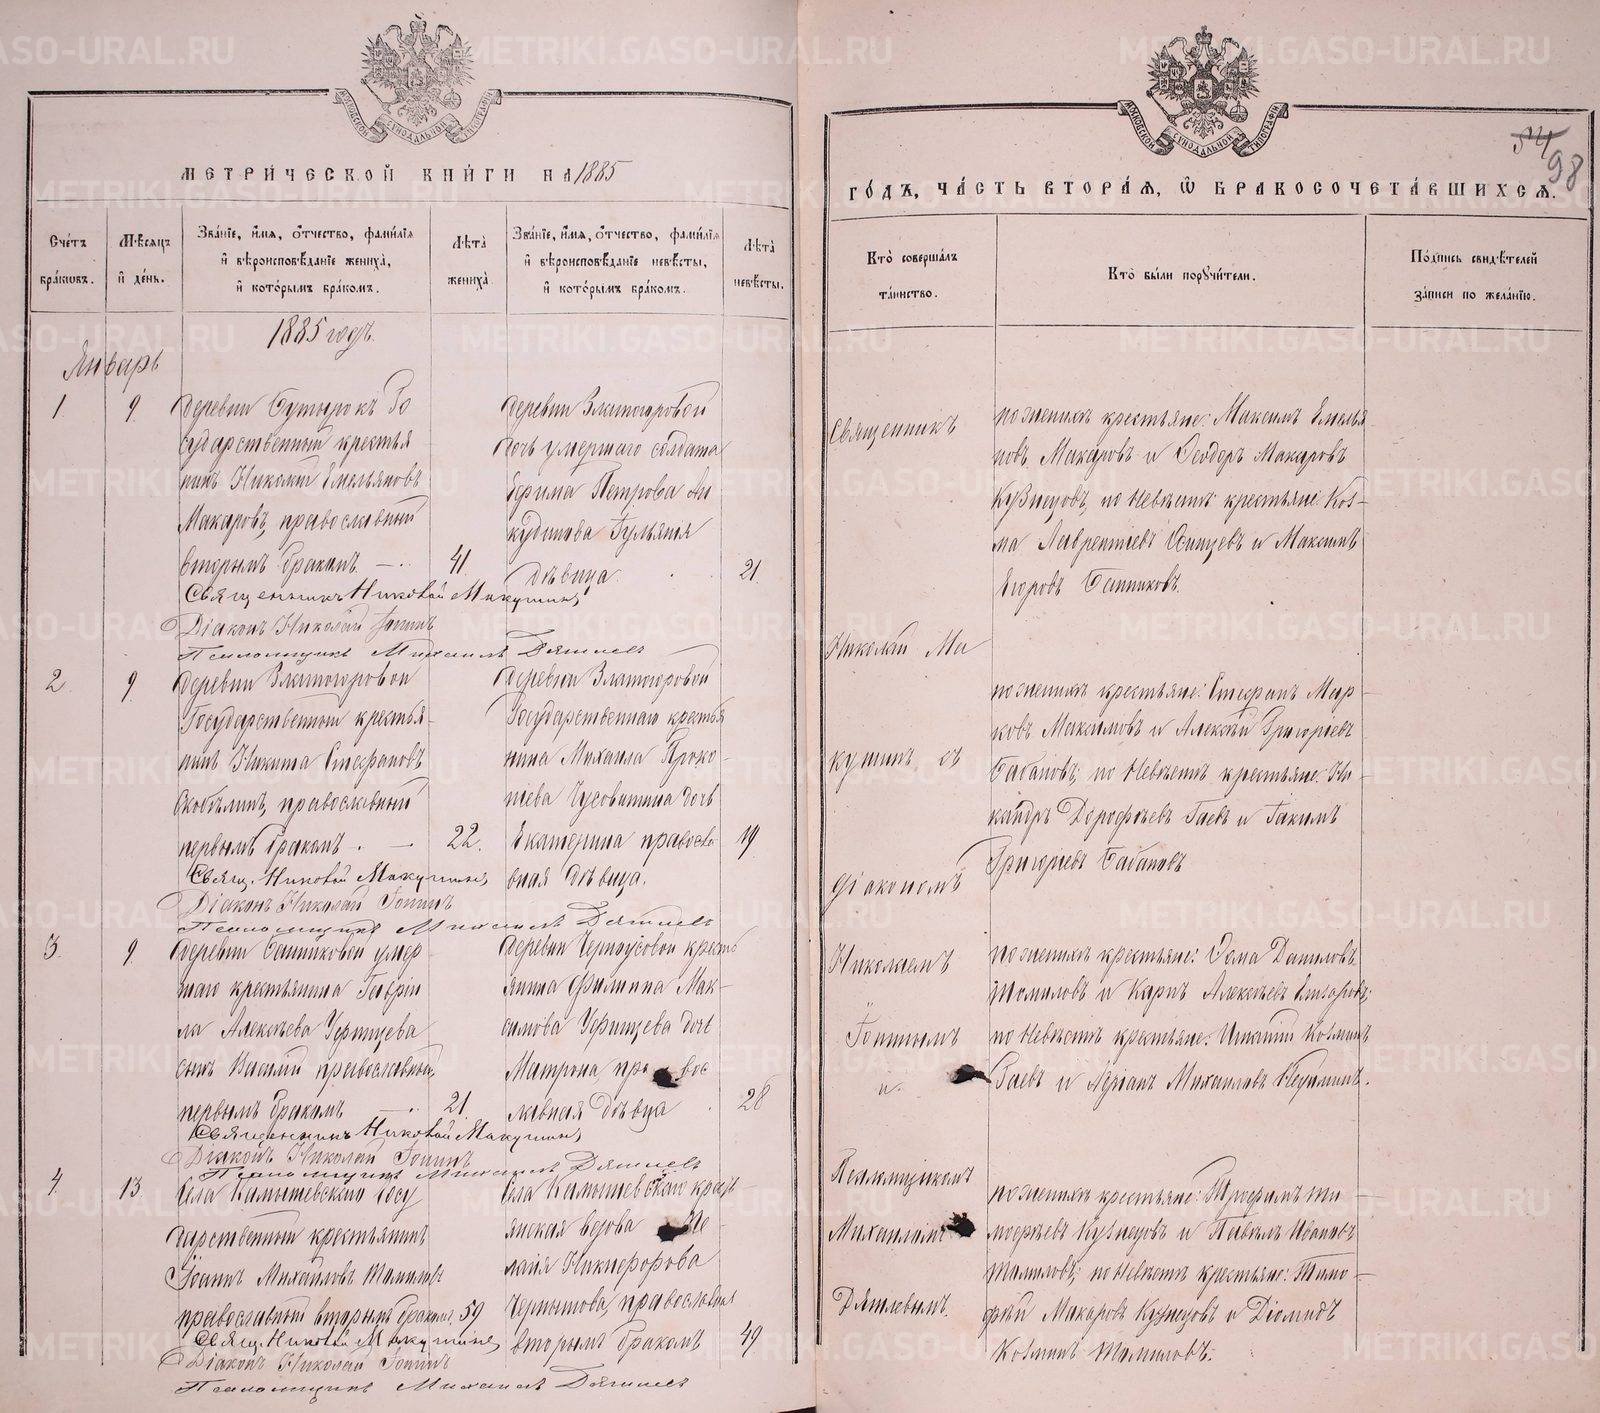 МЕТРИЧЕСКОЙ КНИГИ НА 1885
Счетъ браковъ.
Мѣсяцъ и день.
Званіе, имя, отчество, фамилія и вѣроисповѣданіе жениха, и которымъ бракомъ.
Лѣта жениха.
Званіе, имя, отчество, фамилія и вѣроисповѣданіе невѣсты, и которымъ бракомъ.
Лѣта невѣсты.
1885 годъ.
Январь
1 9
деревни Бутырокъ Го
сударственный крестья
нинъ Николай Емельяновъ
Макаровъ, православный
вторымъ бракомъ 41
деревни Златогоровой
дочь умершаго солдата
Ефима Петрова Ан
кудинова Іуліанія
дѣвица 21
Священникъ Николай Макушинъ
Діаконъ Николай Іонинъ
Псаломщикъ Михаилъ Дягилевъ
2 9
деревни Златогоровой
Государственный крестья
нинъ Никита Стефановъ
Скобѣлинъ, православный
первымъ бракомъ 22.
деревни Златогоровой
Государственнаго крестья
нина Михаила Проко
пьева Чусовитина дочь
Екатерина правосла
вная дѣвица. 19
Свящ. Николай Макушинъ
Діаконъ Николай Іонинъ
Псаломщикъ Михаилъ Дягилевъ
3. 9
деревни Банниковой умер
шаго крестьянина Гаврiи
ла Алексѣева Уфинцева
сынъ Василій православный
первымъ бракомъ 21.
деревни Черноусовой кресть
янина Филиппа Мак
симова Уфинцева дочь
Матрона, правос
лавная дѣвица 28
Священникъ Николай Макушинъ
Діаконъ Николай Іонинъ
Псаломщикъ Михаилъ Дягилевъ
4. 13
Села Камышевскаго Госу
дарственный крестьянинъ
Іоаннъ Михайловъ Томиловъ
православный вторымъ бракомъ 59
Села Камышевскаго крест
янская вдова
Никифорова
православная
вторымъ бракомъ 49
Свящ. Николай Макушинъ
Діаконъ Николай Іонинъ
Псаломщикъ Михаилъ Дягилевъ
МОСКОВСКОЙ СѴНОДАЛЬНОЙ ТИПОГРАФІИ
98
ГОДЪ, ЧАСТЬ ВТОРАЯ, Ѡ БРАКОСОЧЕТАВШИХСЯ.
Кто совершалъ таинство.
Кто были поручители.
Подпись свидѣтелей записи по желанію.
Священникъ
Николай Ма
кушинъ съ
діакономъ
Николаемъ
Іонинымъ
и
Псаломщикомъ
Михаиломъ
Дягилевымъ.
по женихѣ крестьяне: Максимъ Емелья
новъ Макаровъ и Ѳеодоръ Макаровъ
Кузнецовъ, по невѣстѣ: крестьяне: Коз
ма Лаврентіевъ Одинцевъ и Максимъ
Егоровъ Банниковъ.
по женихѣ крестьяне: Стефанъ Мар
ковъ Максимовъ и Алексѣй Григоріевъ
Бабановъ, по невѣстѣ крестьяне: Ни
кандръ Дорофѣевъ Гаевъ и Іакимъ
Григоріевъ Бабановъ
по женихѣ крестьяне: Ѳома Даниловъ
Томиловъ и Карпъ Алексѣевъ Елизаровъ,
по невѣстѣ крестьяне: Игнатій Козминъ
Гаевъ и Адріанъ Михаиловъ
по женихѣ крестьяне: Трофимъ Ти
мофѣевъ Кузнецовъ и Павелъ Ивановъ
Томиловъ, по невѣстѣ крестьяне: Тимо
фѣй Макаровъ Кузнецовъ и Діомидъ
Козминъ Томиловъ.
METRIKI.GASO-URAL.RU